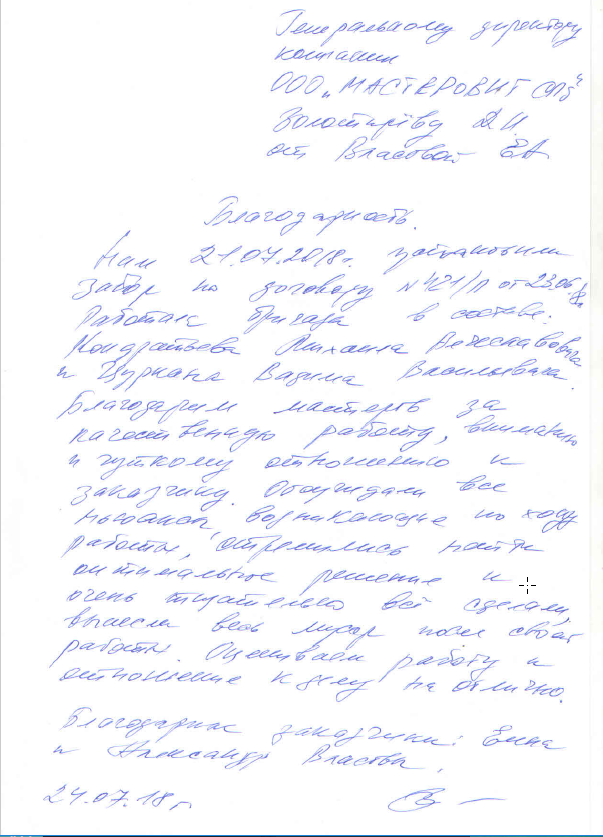 Генеральному директору
компании
ООО „МАСТЕРОВИТ СПб"
Золотарёву Д.И.
от Власовой ЕА
Благодарность.
Нам 21.07.2018г. установили
забор по договору №421/П от 23.06.18г.
Работала бригада в составе:
Кондратьева Михаила Вячеславовича
и Цуркана Вадима Васильевича.
Благодарим мастеров за
качественную работу, внимание
и чуткому отношению к
заказчику. Обсуждали все
нюансы, возникающие по ходу
работы, стремились найти
оптимальное решение и
очень тщательно всё сделали,
вынесли весь мусор после своей
работы. Оцениваем работу и
отношение к делу на отлично.
Благодарные заказчики: Елена
и Александр Власовы.
24.07.18г